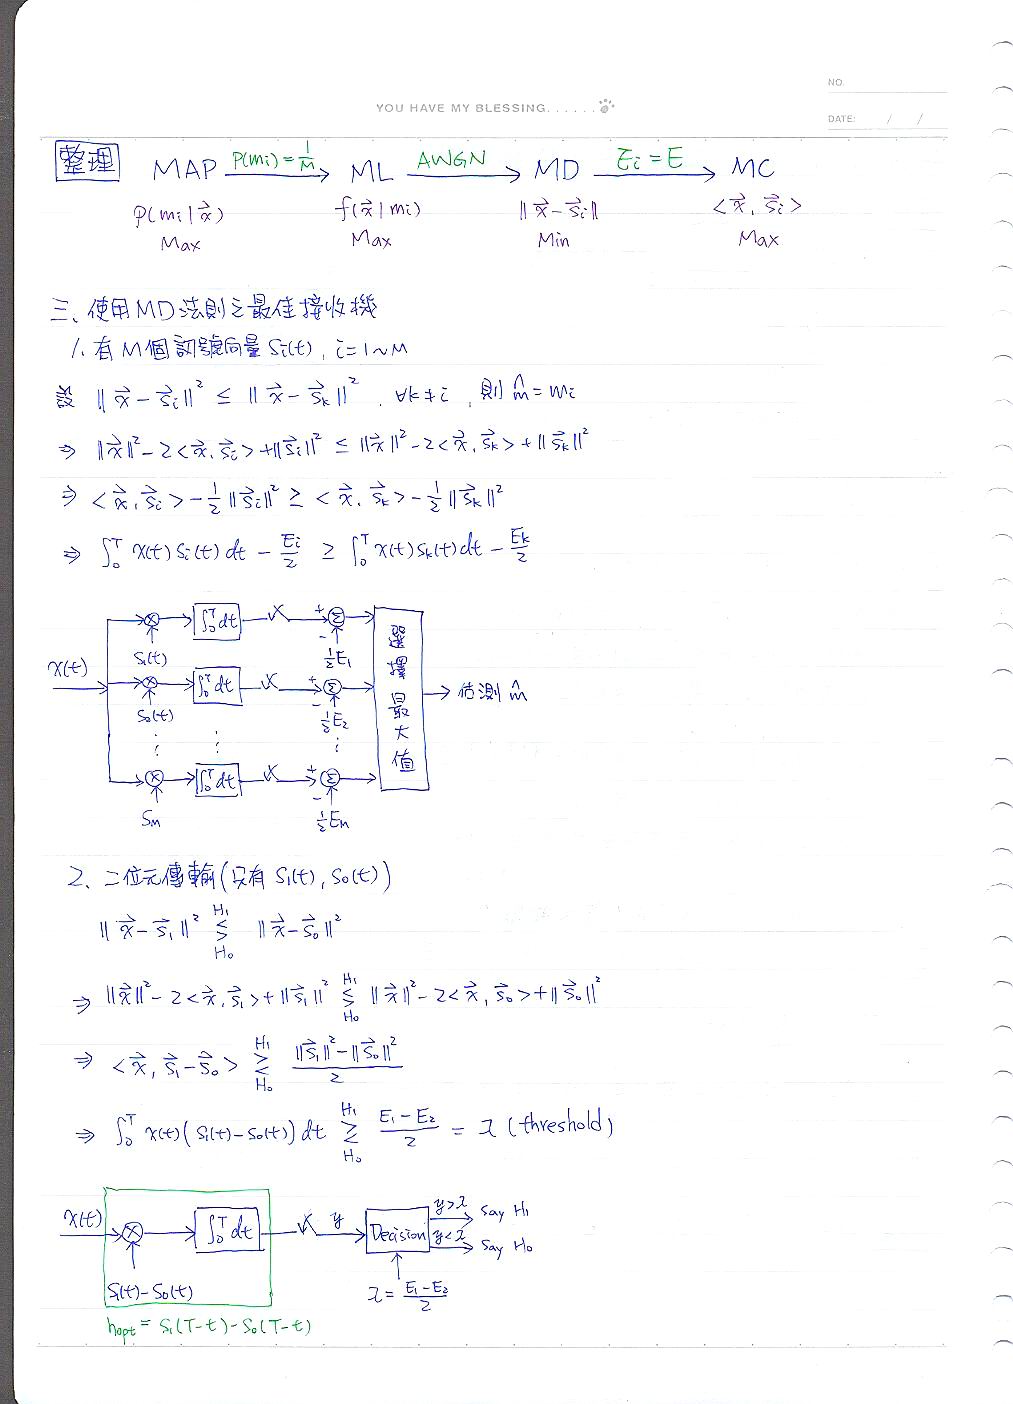 NO.
YOU HAVE MY BLESSING......
DATE: / /
整理 MAP P(mi)=1/M → ML AWGN → MD Ei=E → MC
P(mi|x⃗) f(x⃗|mi) ||x⃗-s⃗i|| <x⃗, s⃗i>
Max Max Min Max
三、使用MD法則之最佳接收機
1. 有M個訊號向量Si(t), i=1~M
設 ||x⃗-s⃗i||² ≤ ||x⃗-s⃗k||², ∀k≠i, 則 m̂=mi
⇒ ||x⃗||²-2<x⃗, s⃗i>+||s⃗i||² ≤ ||x⃗||²-2<x⃗, s⃗k>+||s⃗k||²
⇒ <x⃗, s⃗i>-1/2||s⃗i||² ≥ <x⃗, s⃗k>-1/2||s⃗k||²
⇒ ∫₀ᵀ x(t)Si(t)dt - Ei/2 ≥ ∫₀ᵀ x(t)Sk(t)dt - Ek/2
× ∫₀ᵀdt + Σ
S1(t) - 1/2E1
x(t)
× ∫₀ᵀdt + Σ
S0(t) - 1/2E2
選擇最大值 → 估測 m̂
⋮ ⋮ ⋮
× ∫₀ᵀdt + Σ
SM - 1/2EM
2. 二位元傳輸(只有 S1(t), S0(t))
||x⃗-s⃗1||² ≶ (H1/H0) ||x⃗-s⃗0||²
⇒ ||x⃗||²-2<x⃗, s⃗1>+||s⃗1||² ≶ (H1/H0) ||x⃗||²-2<x⃗, s⃗0>+||s⃗0||²
⇒ <x⃗, s⃗1-s⃗0> ≷ (H1/H0) (||s⃗1||²-||s⃗0||²)/2
⇒ ∫₀ᵀ x(t)(S1(t)-S0(t))dt ≷ (H1/H0) (E1-E2)/2 = λ (threshold)
x(t) × ∫₀ᵀdt y Decision y>λ Say H1
y<λ Say H0
S1(t)-S0(t) λ=(E1-E2)/2
hopt=S1(T-t)-S0(T-t)